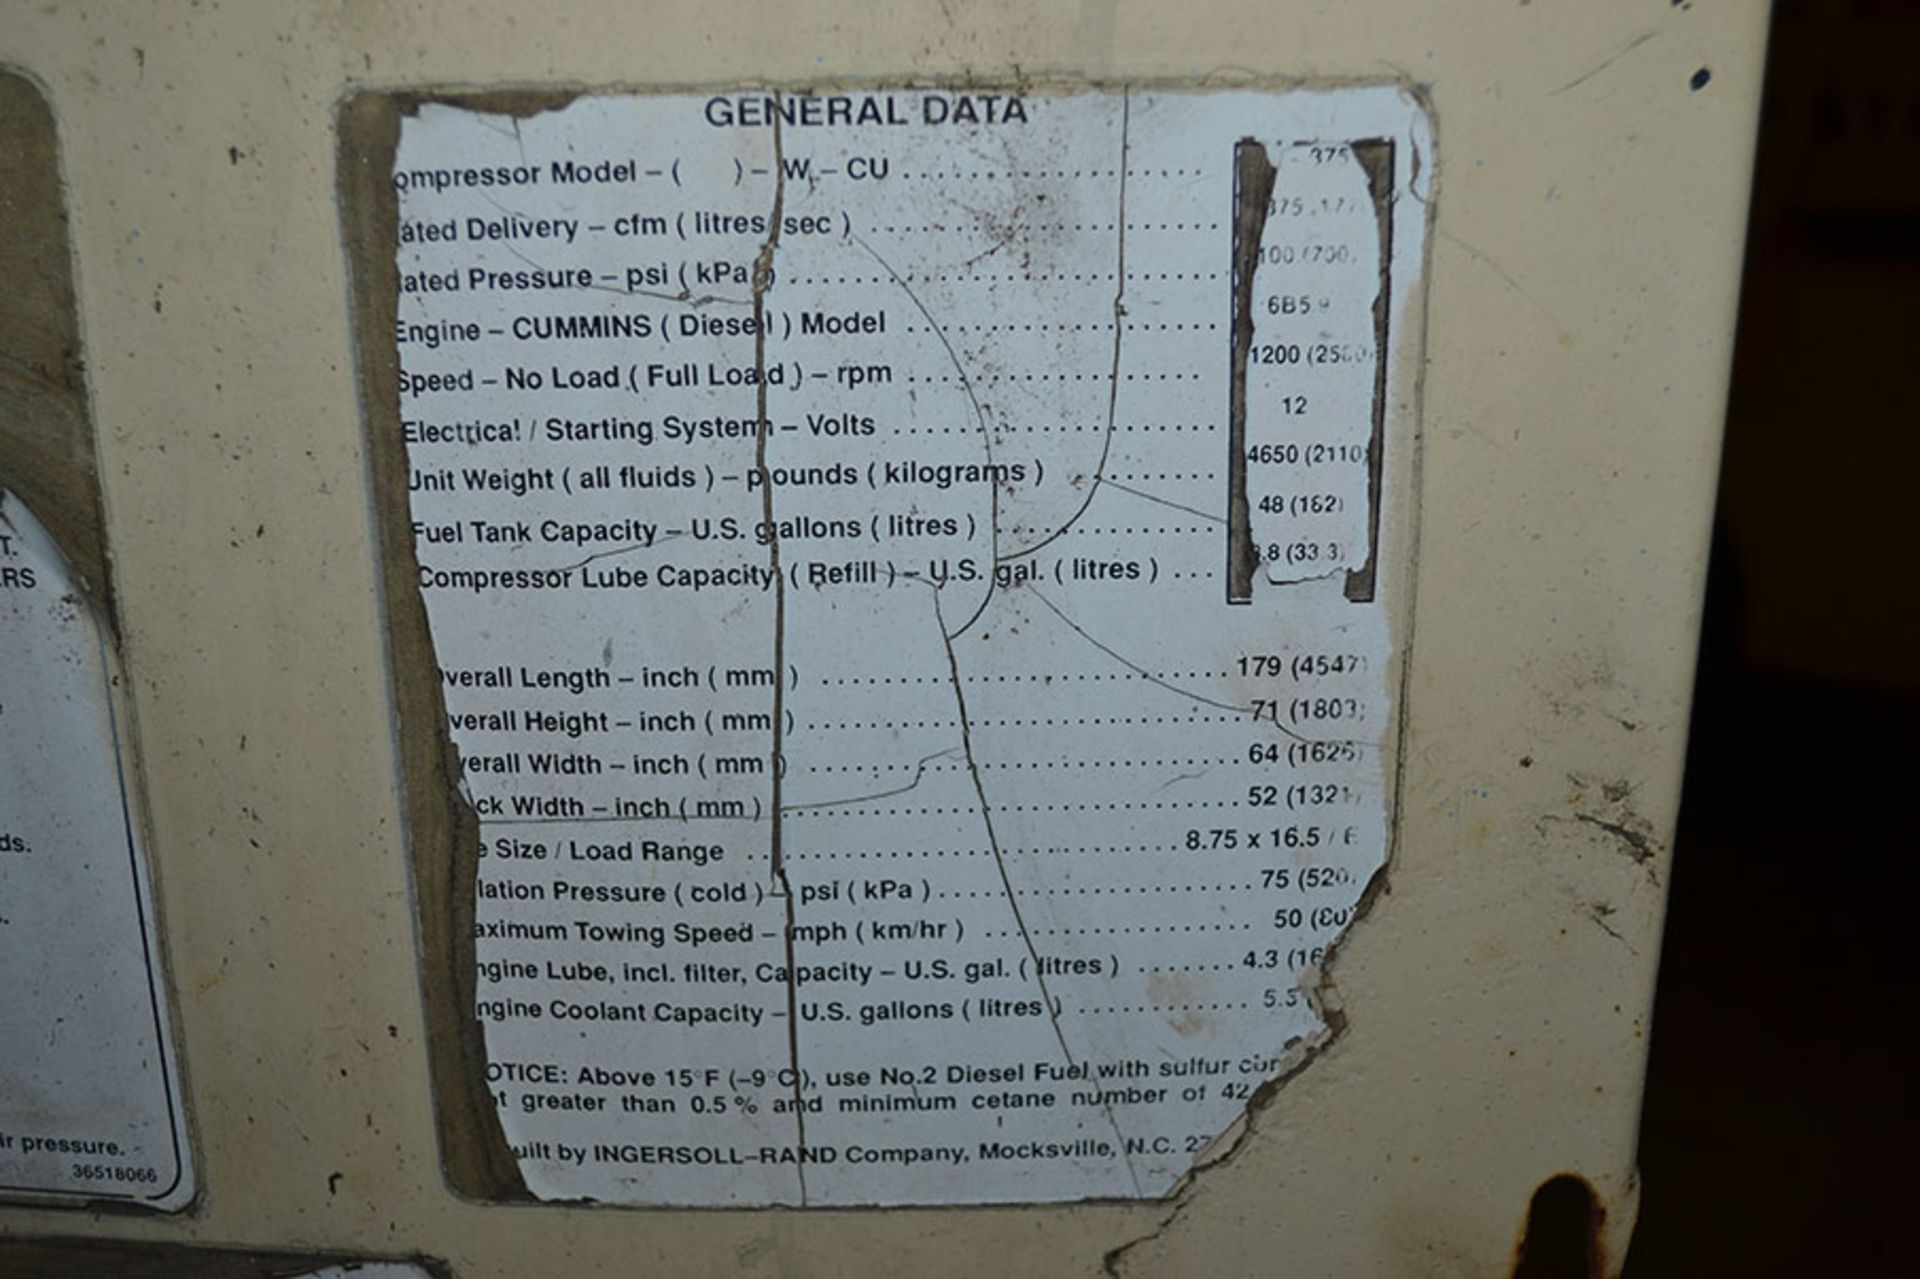 GENERAL DATA
ompressor Model – ( ) – W – CU .................. 375
ated Delivery – cfm ( litres/sec ) ..................
ated Pressure – psi ( kPa ) .................. 100 (700
Engine – CUMMINS ( Diesel ) Model .................. 6B5 9
Speed – No Load ( Full Load ) – rpm .................. 1200
Electrical / Starting System – Volts .................. 12
Unit Weight ( all fluids ) – pounds ( kilograms ) ....... 4650 (2110)
Fuel Tank Capacity – U.S. gallons ( litres ) ............ 48 (182)
Compressor Lube Capacity ( Refill ) – U.S. gal. ( litres ) ... .8 (33.3)
verall Length – inch ( mm ) .................. 179 (4547)
verall Height – inch ( mm ) .................. 71 (1803)
verall Width – inch ( mm ) .................. 64 (1626)
ck Width – inch ( mm ) .................. 52 (1321)
e Size / Load Range .................. 8.75 x 16.5 /
lation Pressure ( cold ) – psi ( kPa ) .................. 75 (520
aximum Towing Speed – mph ( km/hr ) .................. 50 (80
ngine Lube, incl. filter, Capacity – U.S. gal. ( litres ) ....... 4.3 (16
ngine Coolant Capacity – U.S. gallons ( litres ) ...........
OTICE: Above 15°F (–9°C), use No.2 Diesel Fuel with sulfur con
t greater than 0.5 % and minimum cetane number of 42
uilt by INGERSOLL–RAND Company, Mocksville, N.C. 27
T.
RS
ds.
ir pressure.
36518066